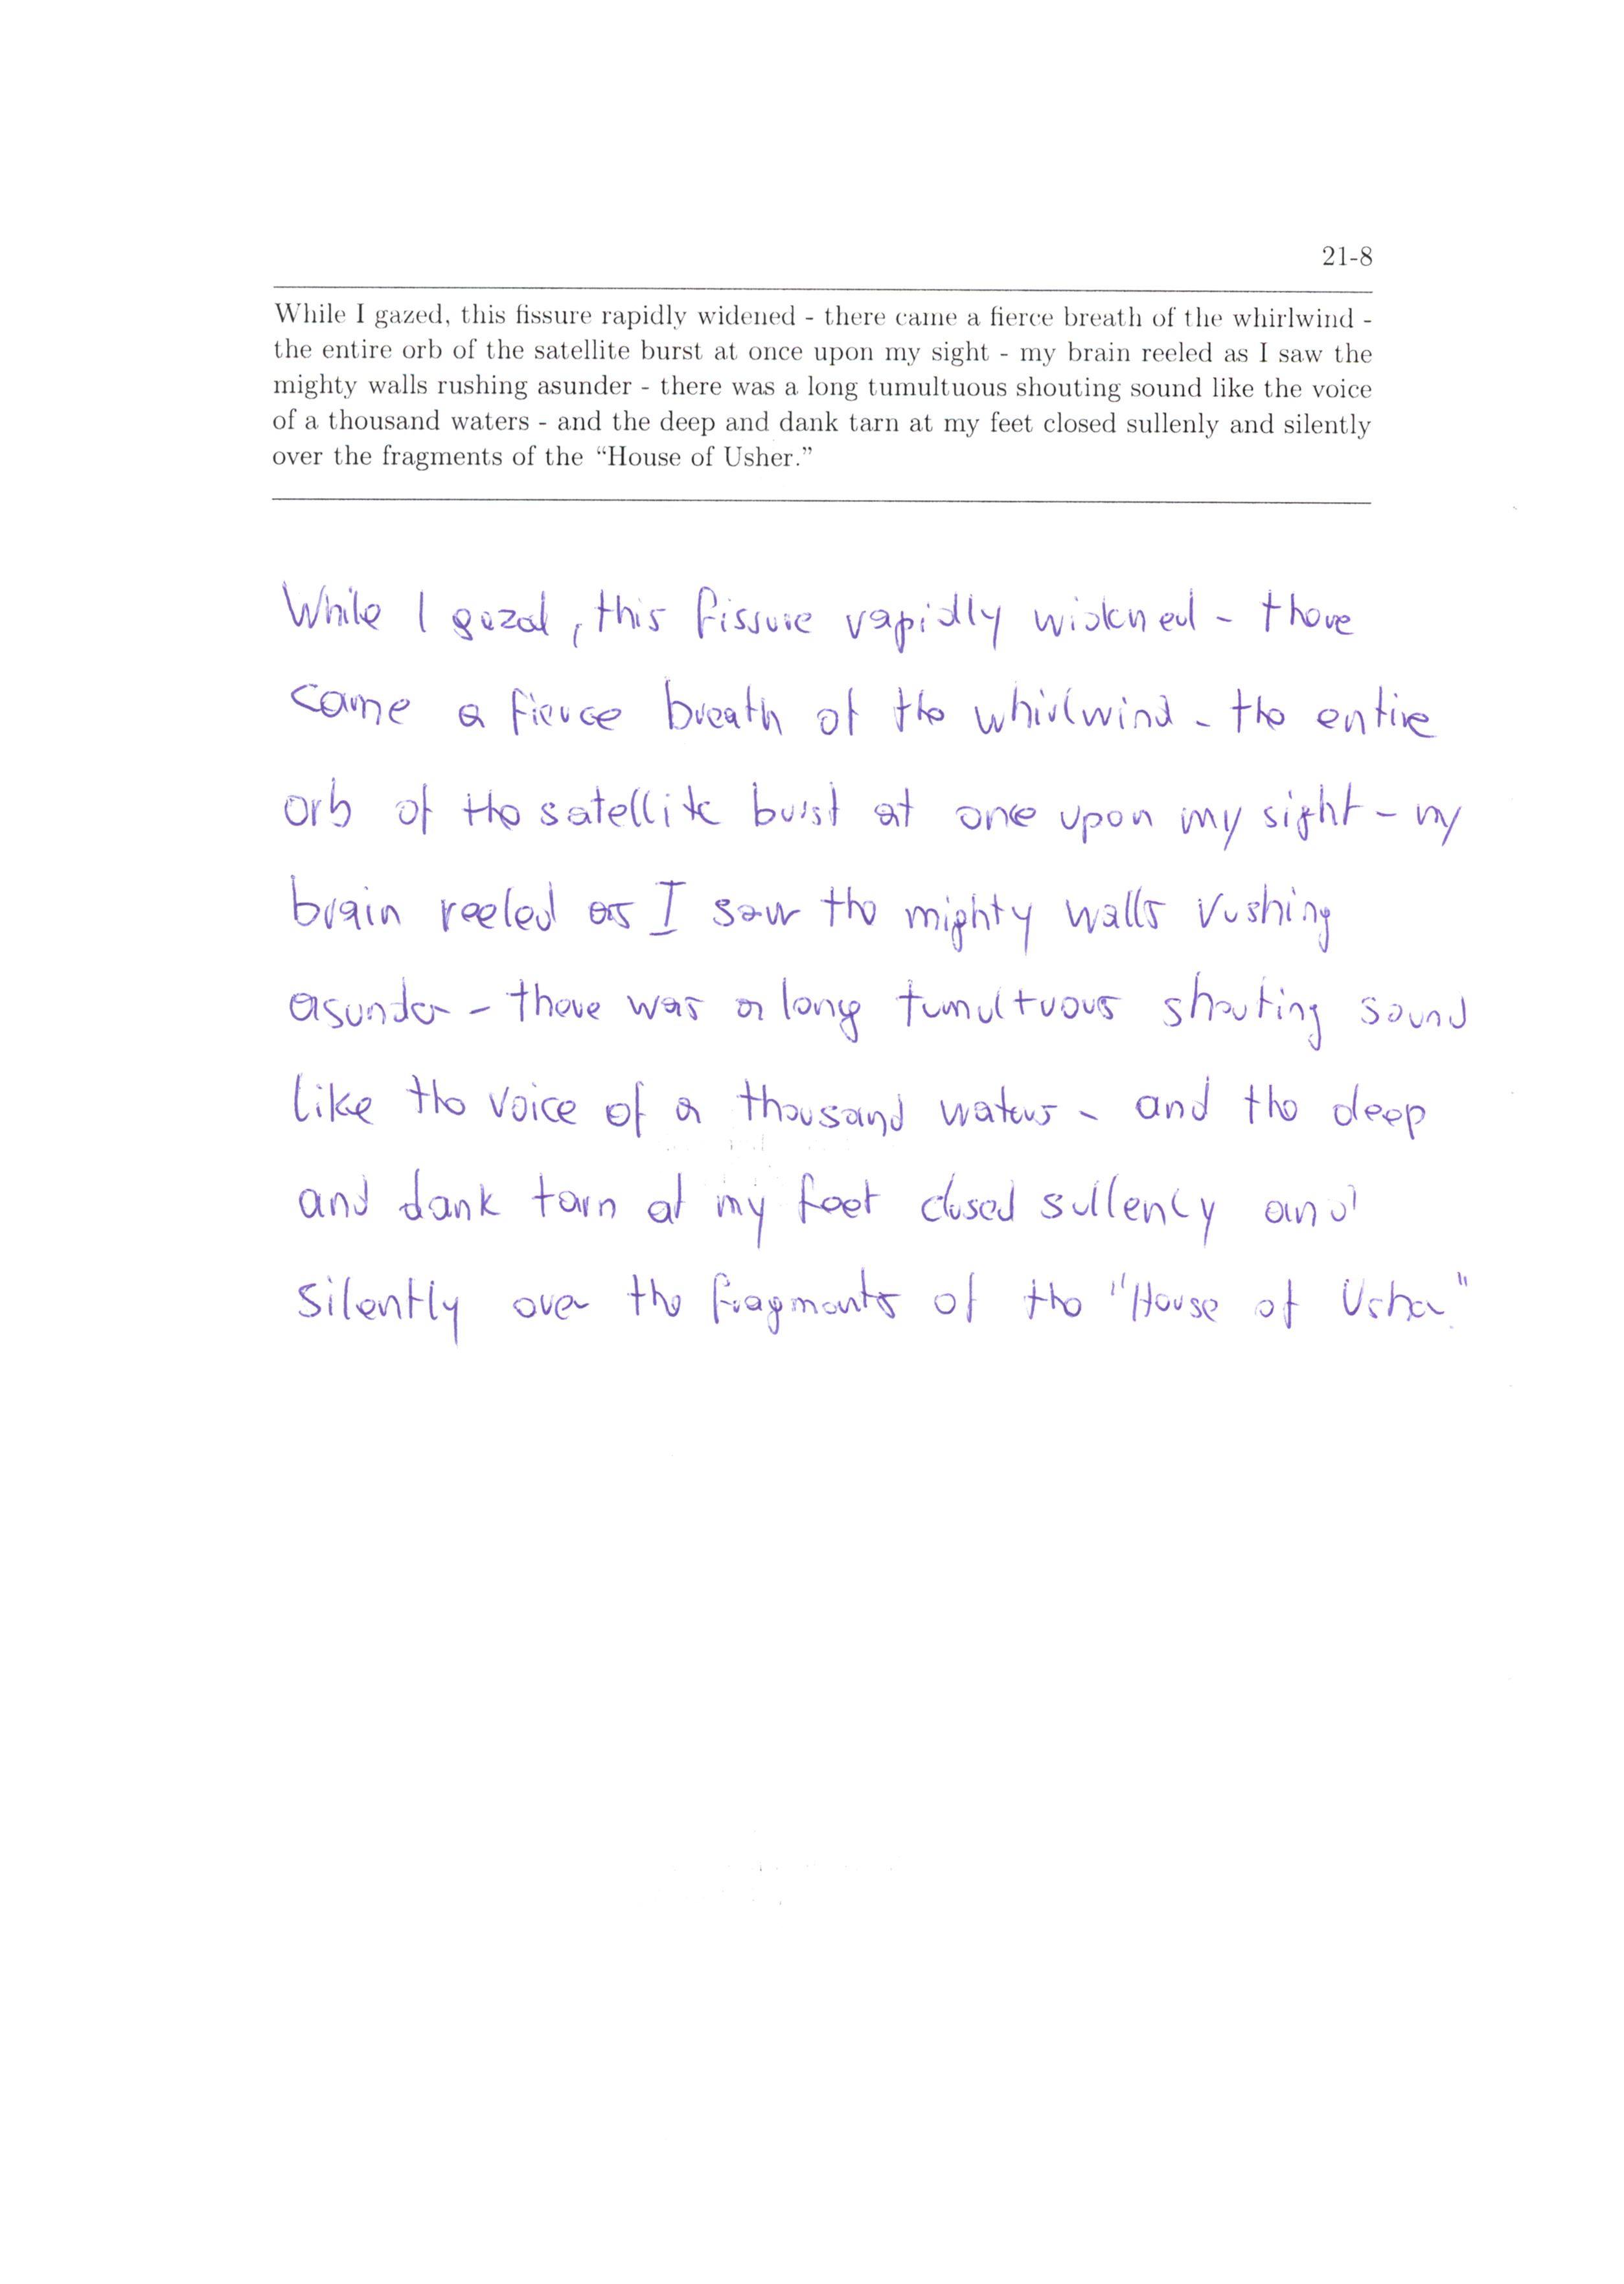 21-8
While I gazed, this fissure rapidly widened - there came a fierce breath of the whirlwind -
the entire orb of the satellite burst at once upon my sight - my brain reeled as I saw the
mighty walls rushing asunder - there was a long tumultuous shouting sound like the voice
of a thousand waters - and the deep and dank tarn at my feet closed sullenly and silently
over the fragments of the “House of Usher.”
While I gazed, this fissure rapidly widened - there
came a fierce breath of the whirlwind - the entire
orb of the satellite burst at once upon my sight - my
brain reeled as I saw the mighty walls rushing
asunder - there was a long tumultuous shouting sound
like the voice of a thousand waters - and the deep
and dank tarn at my feet closed sullenly and
silently over the fragments of the "House of Usher."